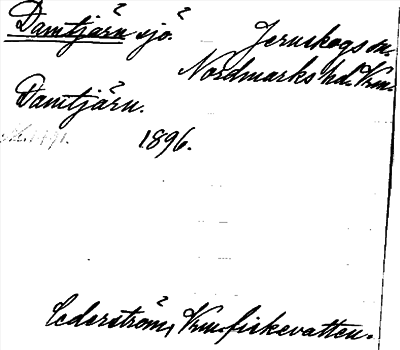 Damtjärn sjö.
Jernskogs sn.
Nordmarks hd. Vrm.
Damtjärn.
1896.
Cederström, Vrm. fiskevatten.